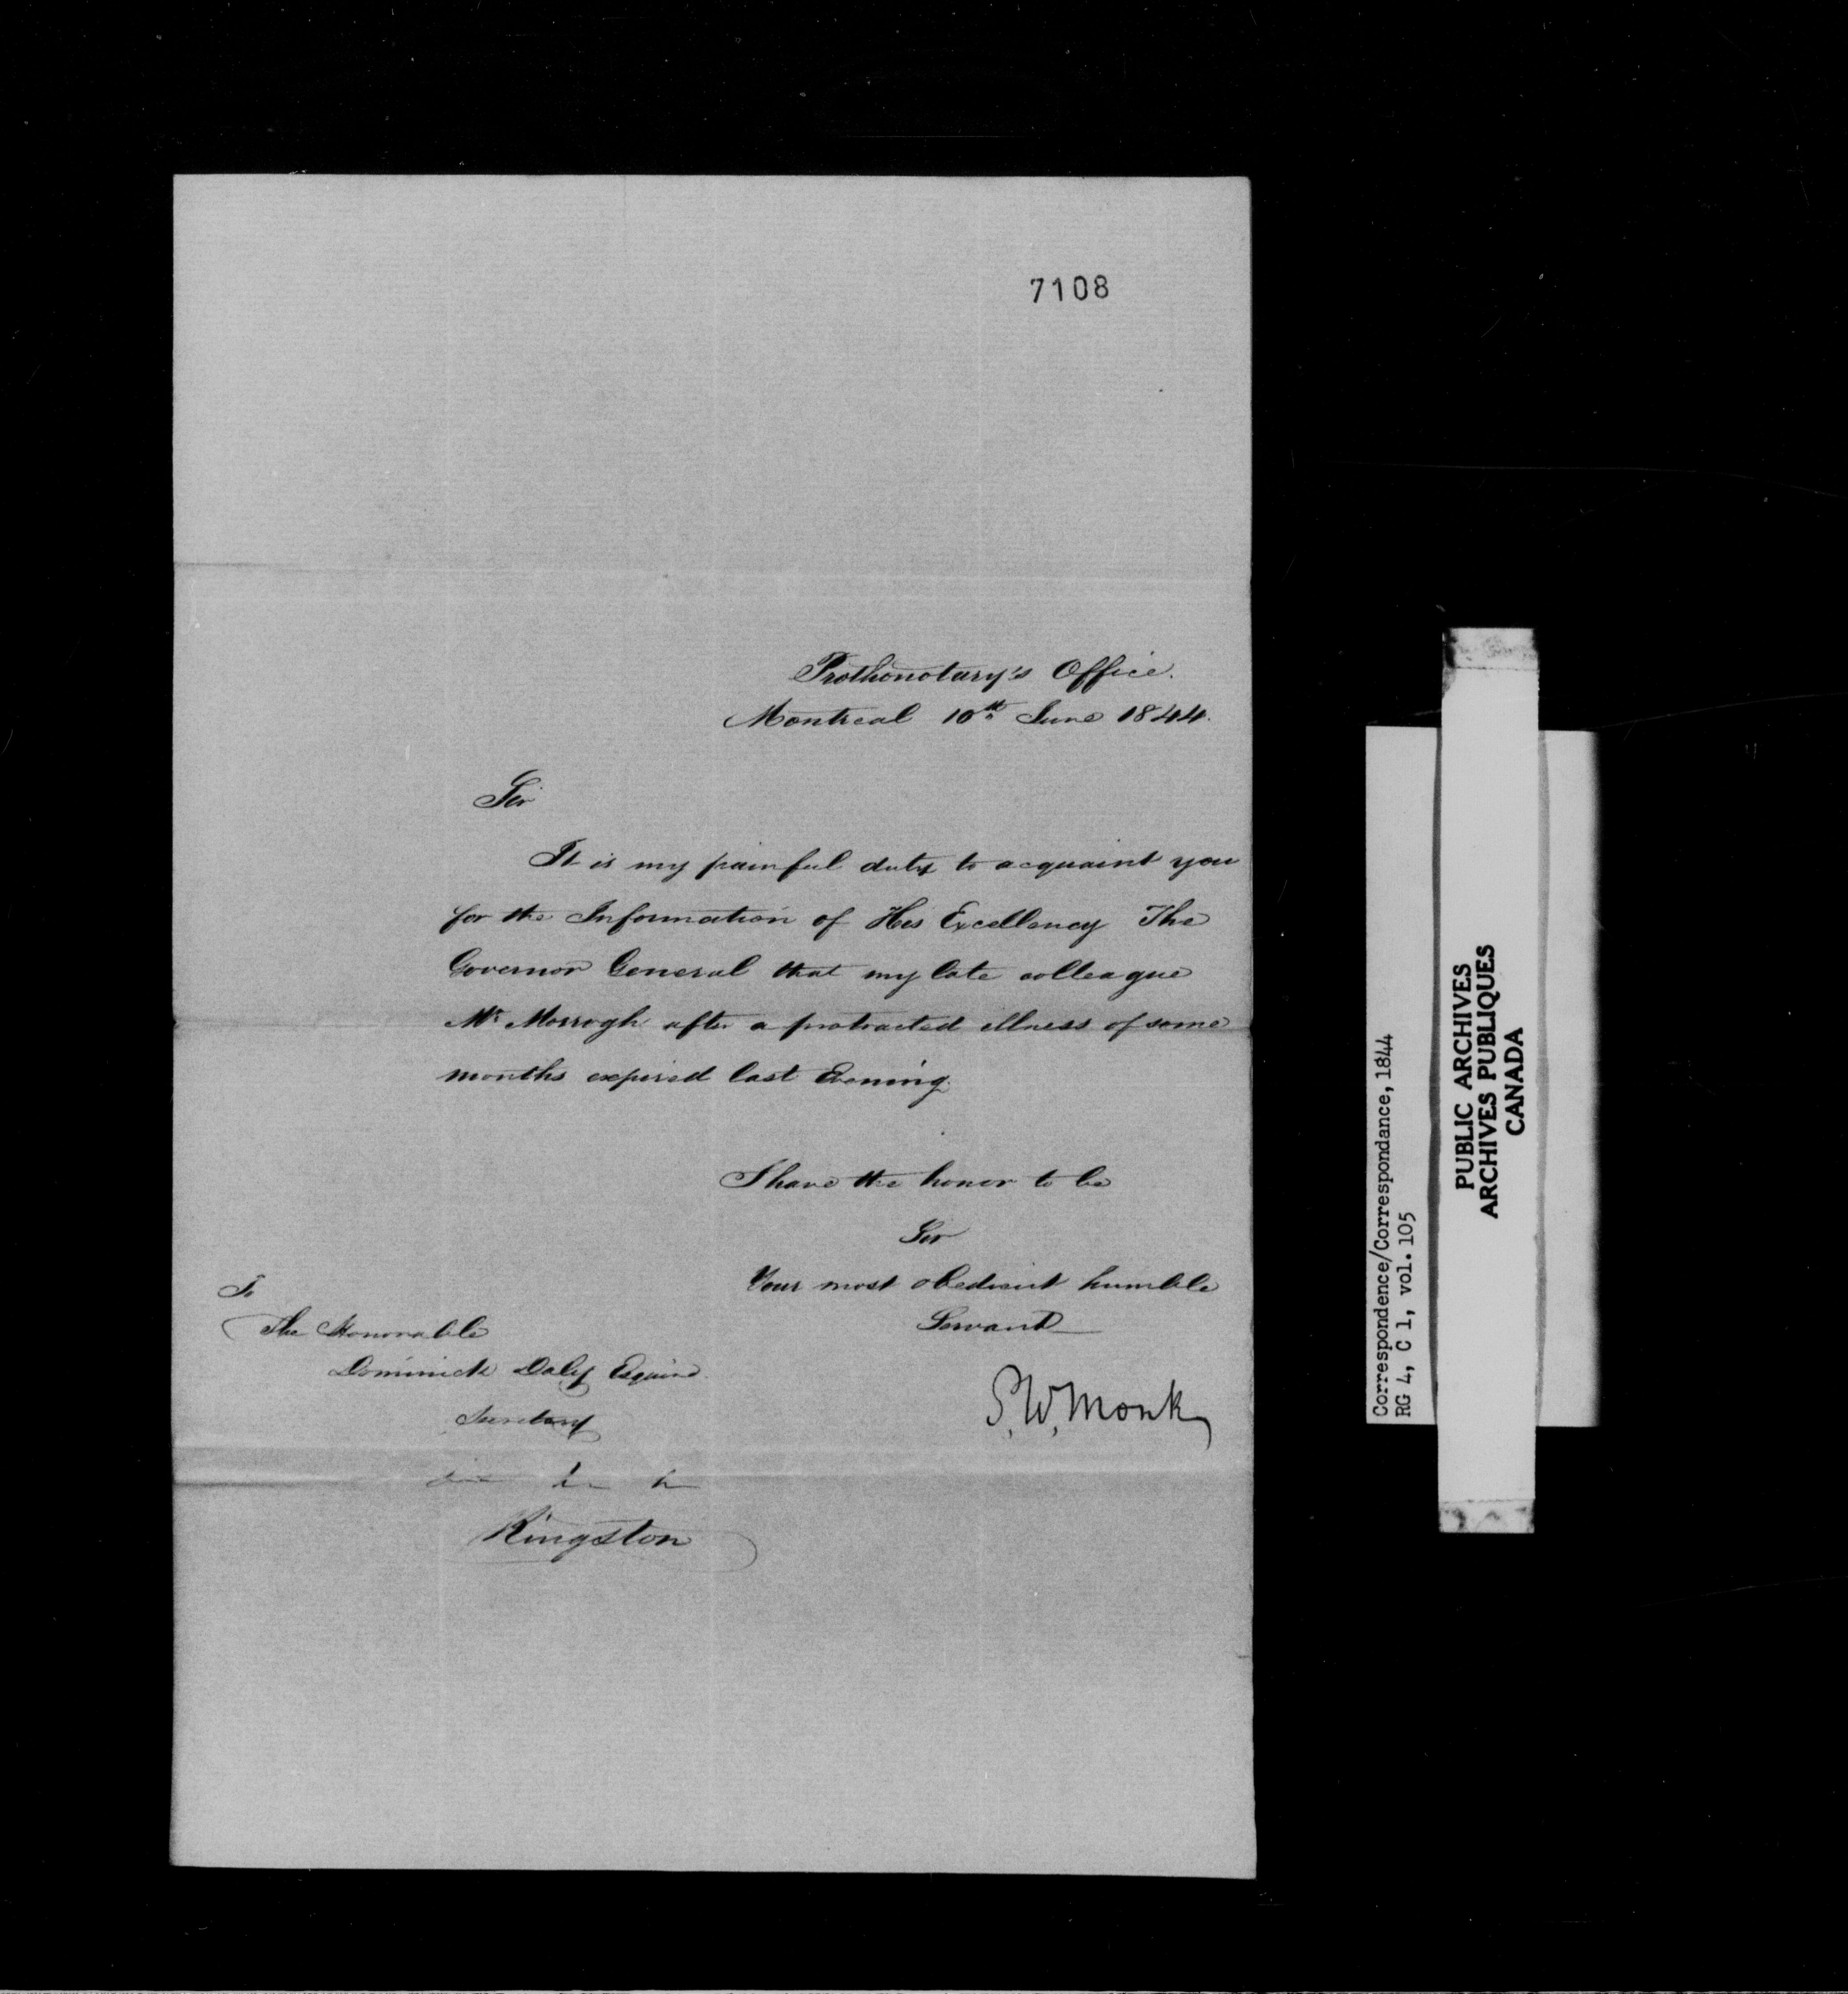 7108
Prothonotary's Office.
Montreal 10th June 1844.
Sir
It is my painful duty to acquaint you
for the Information of His Excellency The
Governor General that my late colleague
Mr Morrogh after a protracted illness of some
months expired last Evening.
I have the honor to be
Sir
Your most obedient humble
Servant
S. W. Monk
To
The Honorable
Dominick Daly Esquire
Secretary
Kingston
Correspondence/Correspondance, 1844
RG 4, C 1, vol. 105
PUBLIC ARCHIVES
ARCHIVES PUBLIQUES
CANADA